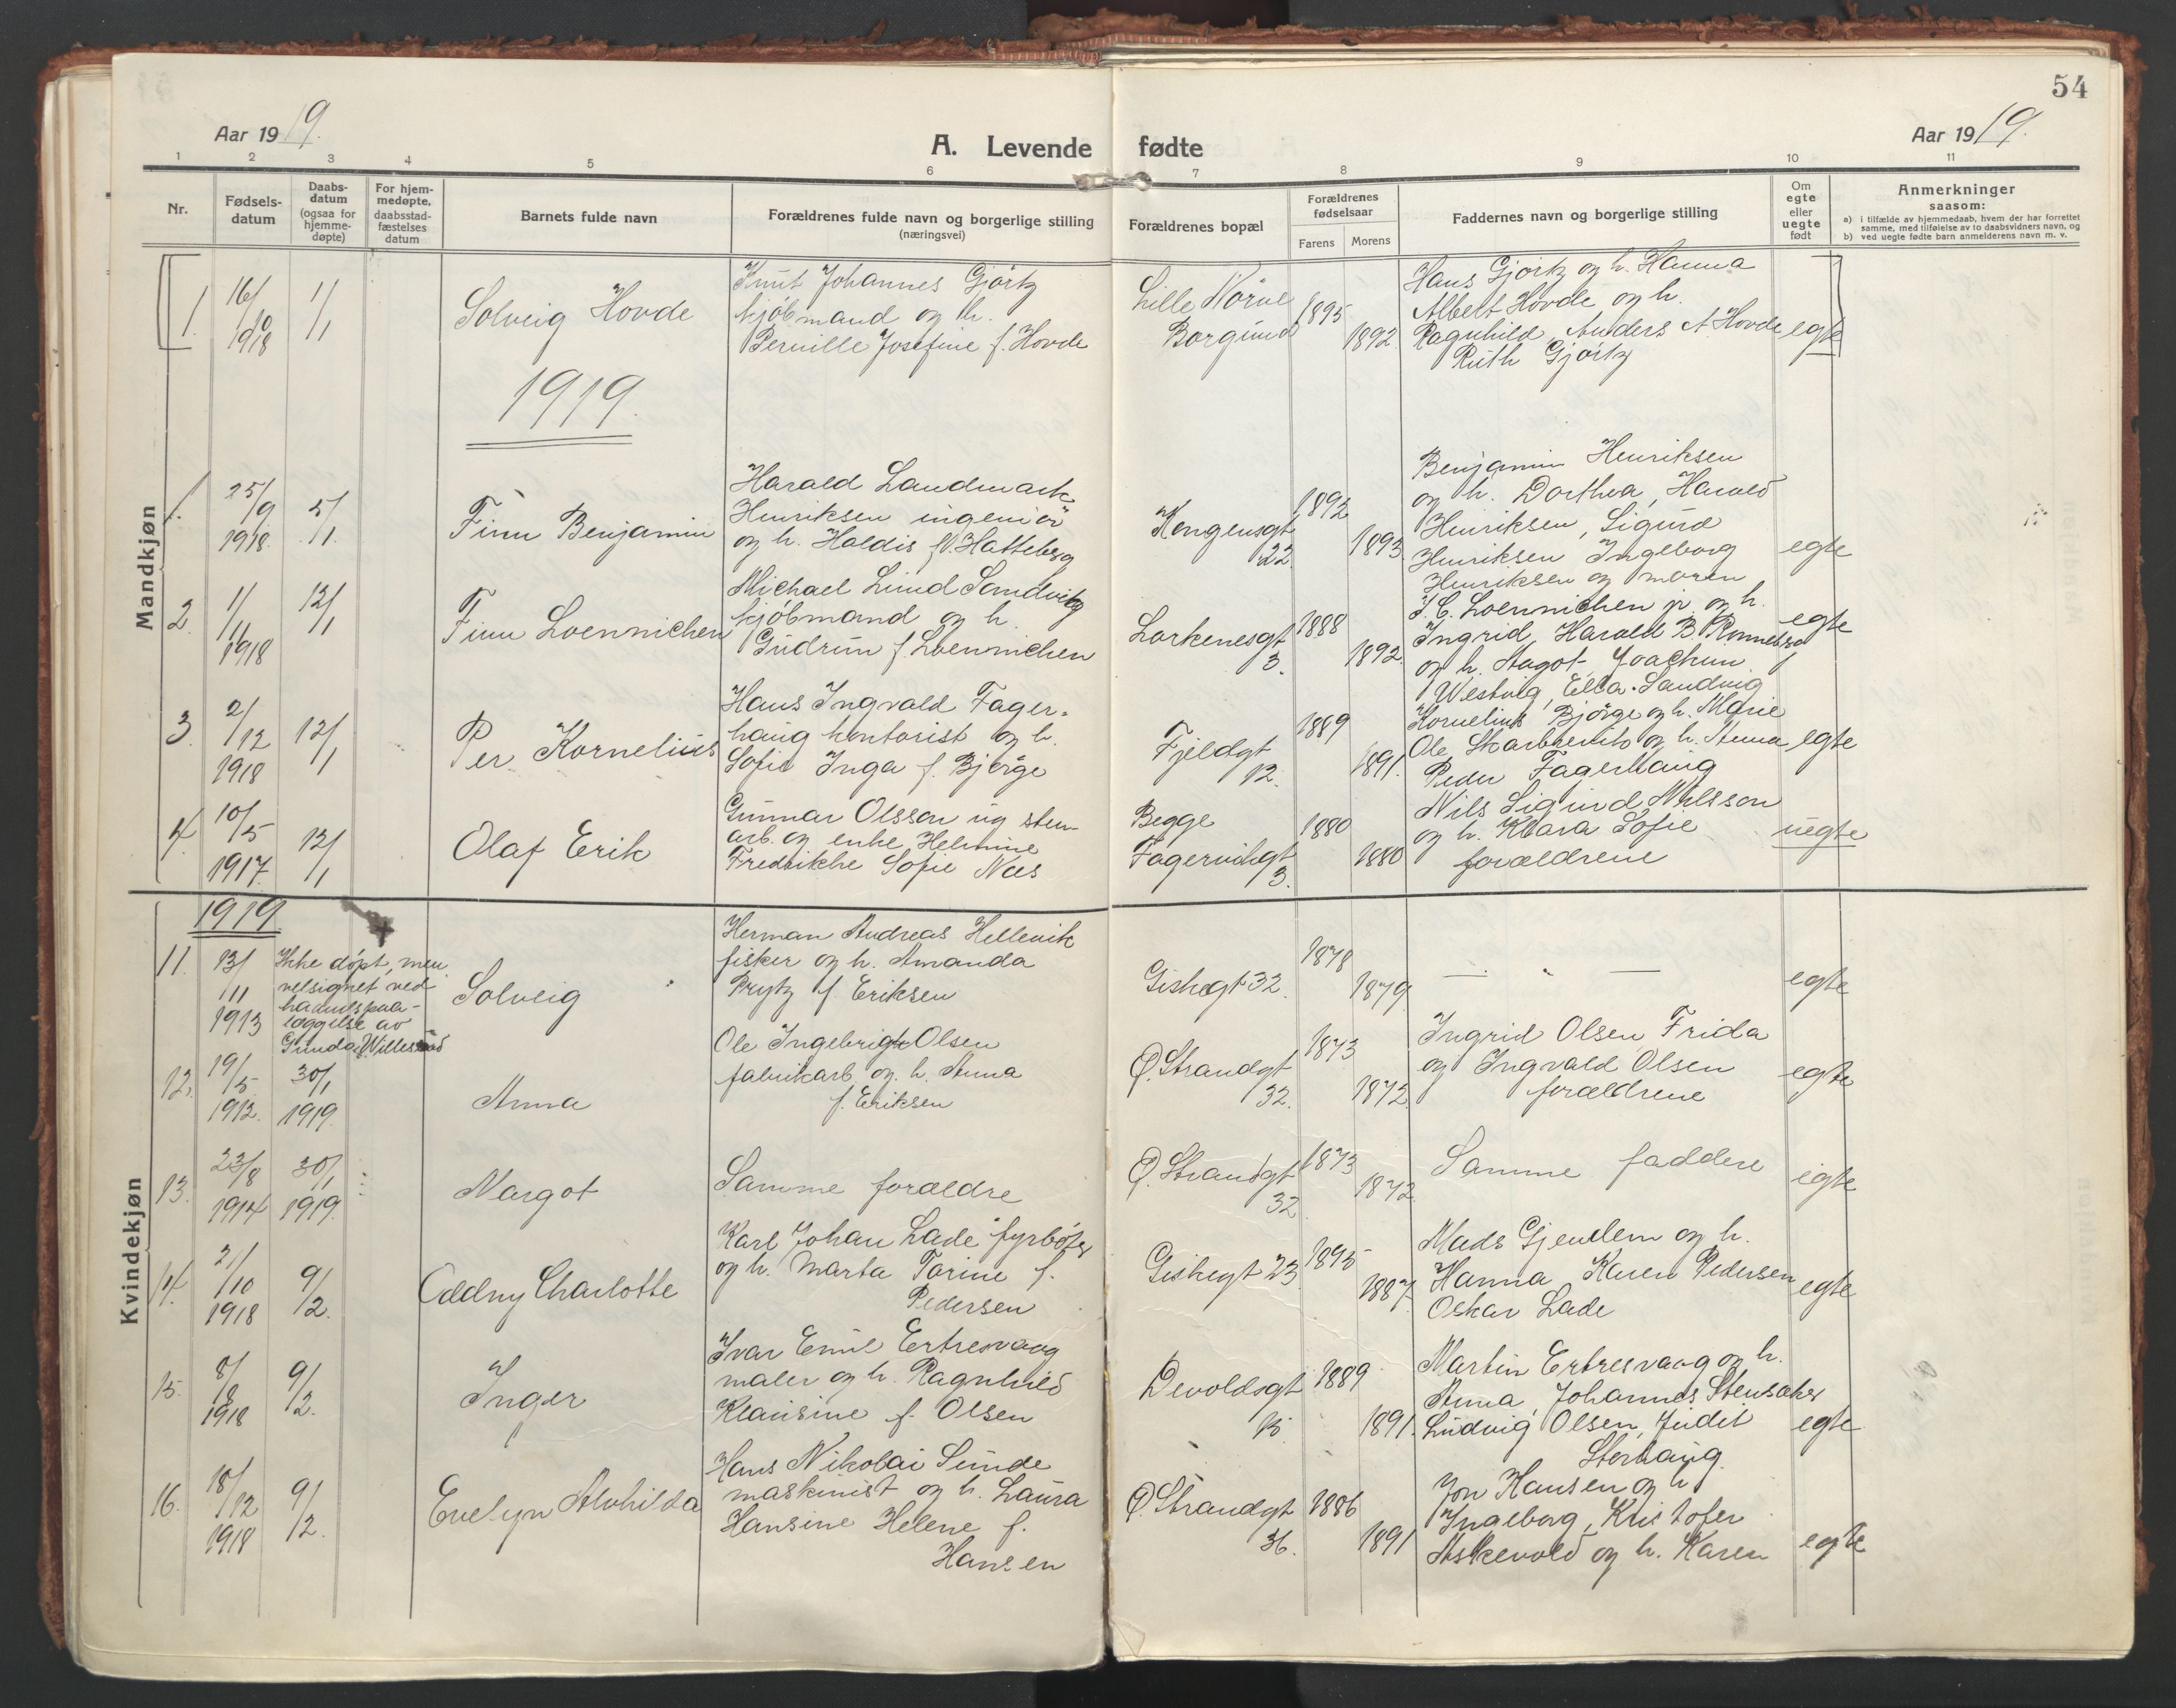 54
Aar 1919.
A. Levende fødte
Aar 1919.
1 2 3 4 5 6 7 8 9 10 11
Nr.
Fødsels-
datum
Daabs-
datum
(ogsaa for
hjemme-
døpte)
For hjem-
medøpte,
daabsstad-
fæstelses
datum
Barnets fulde navn
Forældrenes fulde navn og borgerlige stilling
(næringsvei)
Forældrenes bopæl
Forældrenes
fødselsaar
Farens Morens
Faddernes navn og borgerlige stilling
Om
egte
eller
uegte
født
Anmerkninger
saasom:
a) i tilfælde av hjemmedaab, hvem der har forrettet
samme, med tilføielse av to daabsvidners navn, og
b) ved uegte fødte barn anmelderens navn m. v.
Mandkjøn
1. 16/10 1918 1/1
Solveig Hovde
Knut Johannes Gjørtz
kjøbmand og h.
Pernille Josefine f. Hovde
Lille Nørve
Borgund
1895
1892.
Hans Gjørtz og h. Hanna
Albert Hovde og h.
Ragnhild, Anders A Hovde
Ruth Gjørtz
egte
1919.
1. 25/9 1918. 5/1.
Finn Benjamin
Harald Landmark
Henriksen ingeniør
og h. Haldis f. Hatteberg
Kongensgt
22.
1892
1893
Benjamin Henriksen
og h. Dorthea, Harald
Henriksen, Sigurd
Henriksen Ingeborg
Henriksen og moren
egte
2. 1/11 1918 12/1
Finn Loennichen
Michael Lund Sandvig
kjøbmand og h.
Gudrun f. Loennichen
Lorkenesgt
3.
1888
1892.
J. C. Loennichen jr. og h.
Ingrid, Harald B. Rønneberg
og h. Aagot Joachim
Westvig, Ella Sandvig
egte
3. 2/12 1918 12/1
Per Kornelius
Hans Ingvald Fager-
haug kontorist og h.
Sofie Inga f. Bjørge
Fjeldgt
12.
1889
1891.
Kornelius Bjørge og h. Marie
Ole og h. Anna
Peder Fagerhaug
egte
4. 10/5 1917. 12/1
Olaf Erik
Gunnar Olsson ug sten-
arb. og enke Helmine
Fredrikke Sofie Næs
Begge
Fagervikgt
3.
1880
1880
Nils Sigurd Nilsson
og h. Klara Sofie
forældrene
uegte
Kvindekjøn
1919
11. 13/11 1913
Ikke døpt, men
velsignet ved
haandspaa-
læggelse av
Gunda Willestad
Solveig
Herman Andreas Hellevik
fisker og h. Amanda
Prytz f. Eriksen
Giskegt 32.
1878
1879
— " —
egte
12. 19/5 1912. 30/1 1919.
Anna
Ole Ingebrigt Olsen
fabrikarb. og h. Anna
f. Eriksen
Ø. Strandgt
32.
1873
1872.
Ingrid Olsen, Frida
og Ingvald Olsen
forældrene
egte
13. 23/8 1914 30/1 1919.
Margot
Samme forældre
Ø. Strandgt
32
1873
1872
Samme faddere
egte
14. 21/10 1918 9/2.
Oddny Charlotte
Karl Johan Lade fyrbøter
og h. Marta Torine f.
Pedersen
Giskegt 23
1895
1887.
Mads Gjendem og h.
Hanna Karen Pedersen
Oskar Lade
egte
15. 8/8 1918 9/2.
Inger
Ivar Emil Ertresvaag
maler og h. Ragnhild
Klausine f. Olsen
Devoldsgt
15
1889
1891.
Martin Ertresvaag og h.
Anna, Johannes Stensaker
Ludvig Olsen, Judit
Storhaug
egte
16. 18/12 1918 9/2.
Evelyn Alvhilda
Hans Nikolai Sunde
maskinist og h. Laura
Hansine Helene f.
Hansen
Ø. Strandgt
36.
1886
1891
Jon Hansen og h
Ingeborg, Kristofer
Askevold og h. Karen
egte